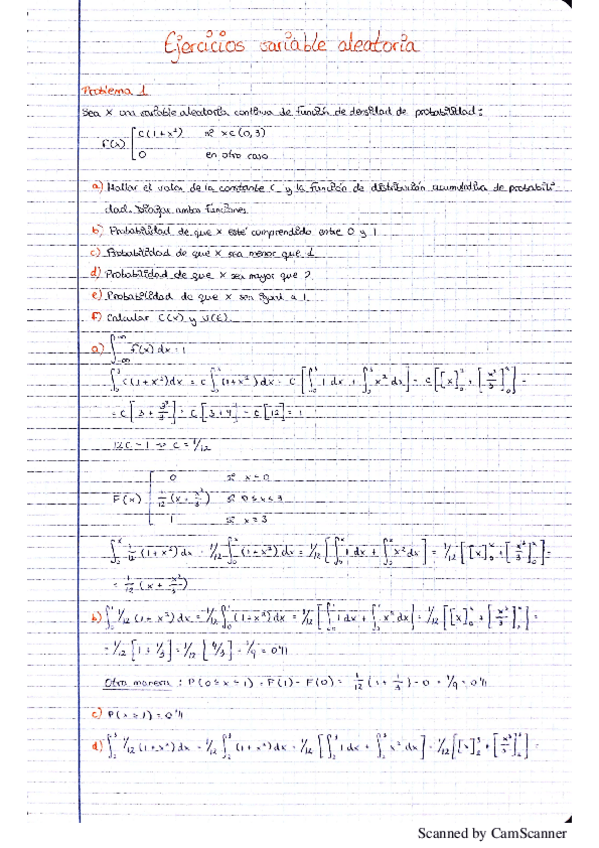 Ejercicios variable aleatoria
Problema 1
Sea x una variable aleatoria continua de función de densidad de probabilidad:
f(x) [ c(1+x²) si x∈(0,3)
0 en otro caso
a) Hallar el valor de la constante c y la función de distribución acumulativa de probabili
dad. Dibujar ambas funciones.
b) Probabilidad de que x esté comprendido entre 0 y 1
c) Probabilidad de que x sea menor que 1
d) Probabilidad de que x sea mayor que 2
e) Probabilidad de que x sea igual a 1.
f) Calcular E(x) y
a) ∫ f(x) dx = 1
∫₀³ c(1+x²)dx = c ∫₀³ (1+x²) dx = c [∫₀³ 1 dx + ∫₀³ x² dx] = c [[x]₀³ + [x³/3]₀³] =
= c [3 + 3³/3] = c [3+9] = c [12] = 1
12c = 1 ⇒ c = 1/12
F(x) [ 0 si
1/12 (x + x³/3) si
1 si
∫₀ˣ 1/12 (1+x²) dx = 1/12 ∫₀ˣ (1+x²) dx = 1/12 [∫₀ˣ 1 dx + ∫₀ˣ x² dx] = 1/12 [[x]₀ˣ + [x³/3]₀ˣ] =
= 1/12 (x + x³/3)
b) ∫₀¹ 1/12 (1+x²) dx = 1/12 ∫₀¹ (1+x²) dx = 1/12 [∫₀¹ 1 dx + ∫₀¹ x² dx] = 1/12 [[x]₀¹ + [x³/3]₀¹] =
= 1/12 [1 + 1/3] = 1/12 [4/3] = 1/9 = 0'11
Otra manera: P(0≤x≤1) = F(1) - F(0) = 1/12 (1 + 1/3) - 0 = 1/9 = 0'11
c) P(x≤1) = 0'11
d) ∫₂³ 1/12 (1+x²) dx = 1/12 ∫₂³ (1+x²) dx = 1/12 [∫₂³ 1 dx + ∫₂³ x² dx] = 1/12 [[x]₂³ + [x³/3]₂³] =
Scanned by CamScanner